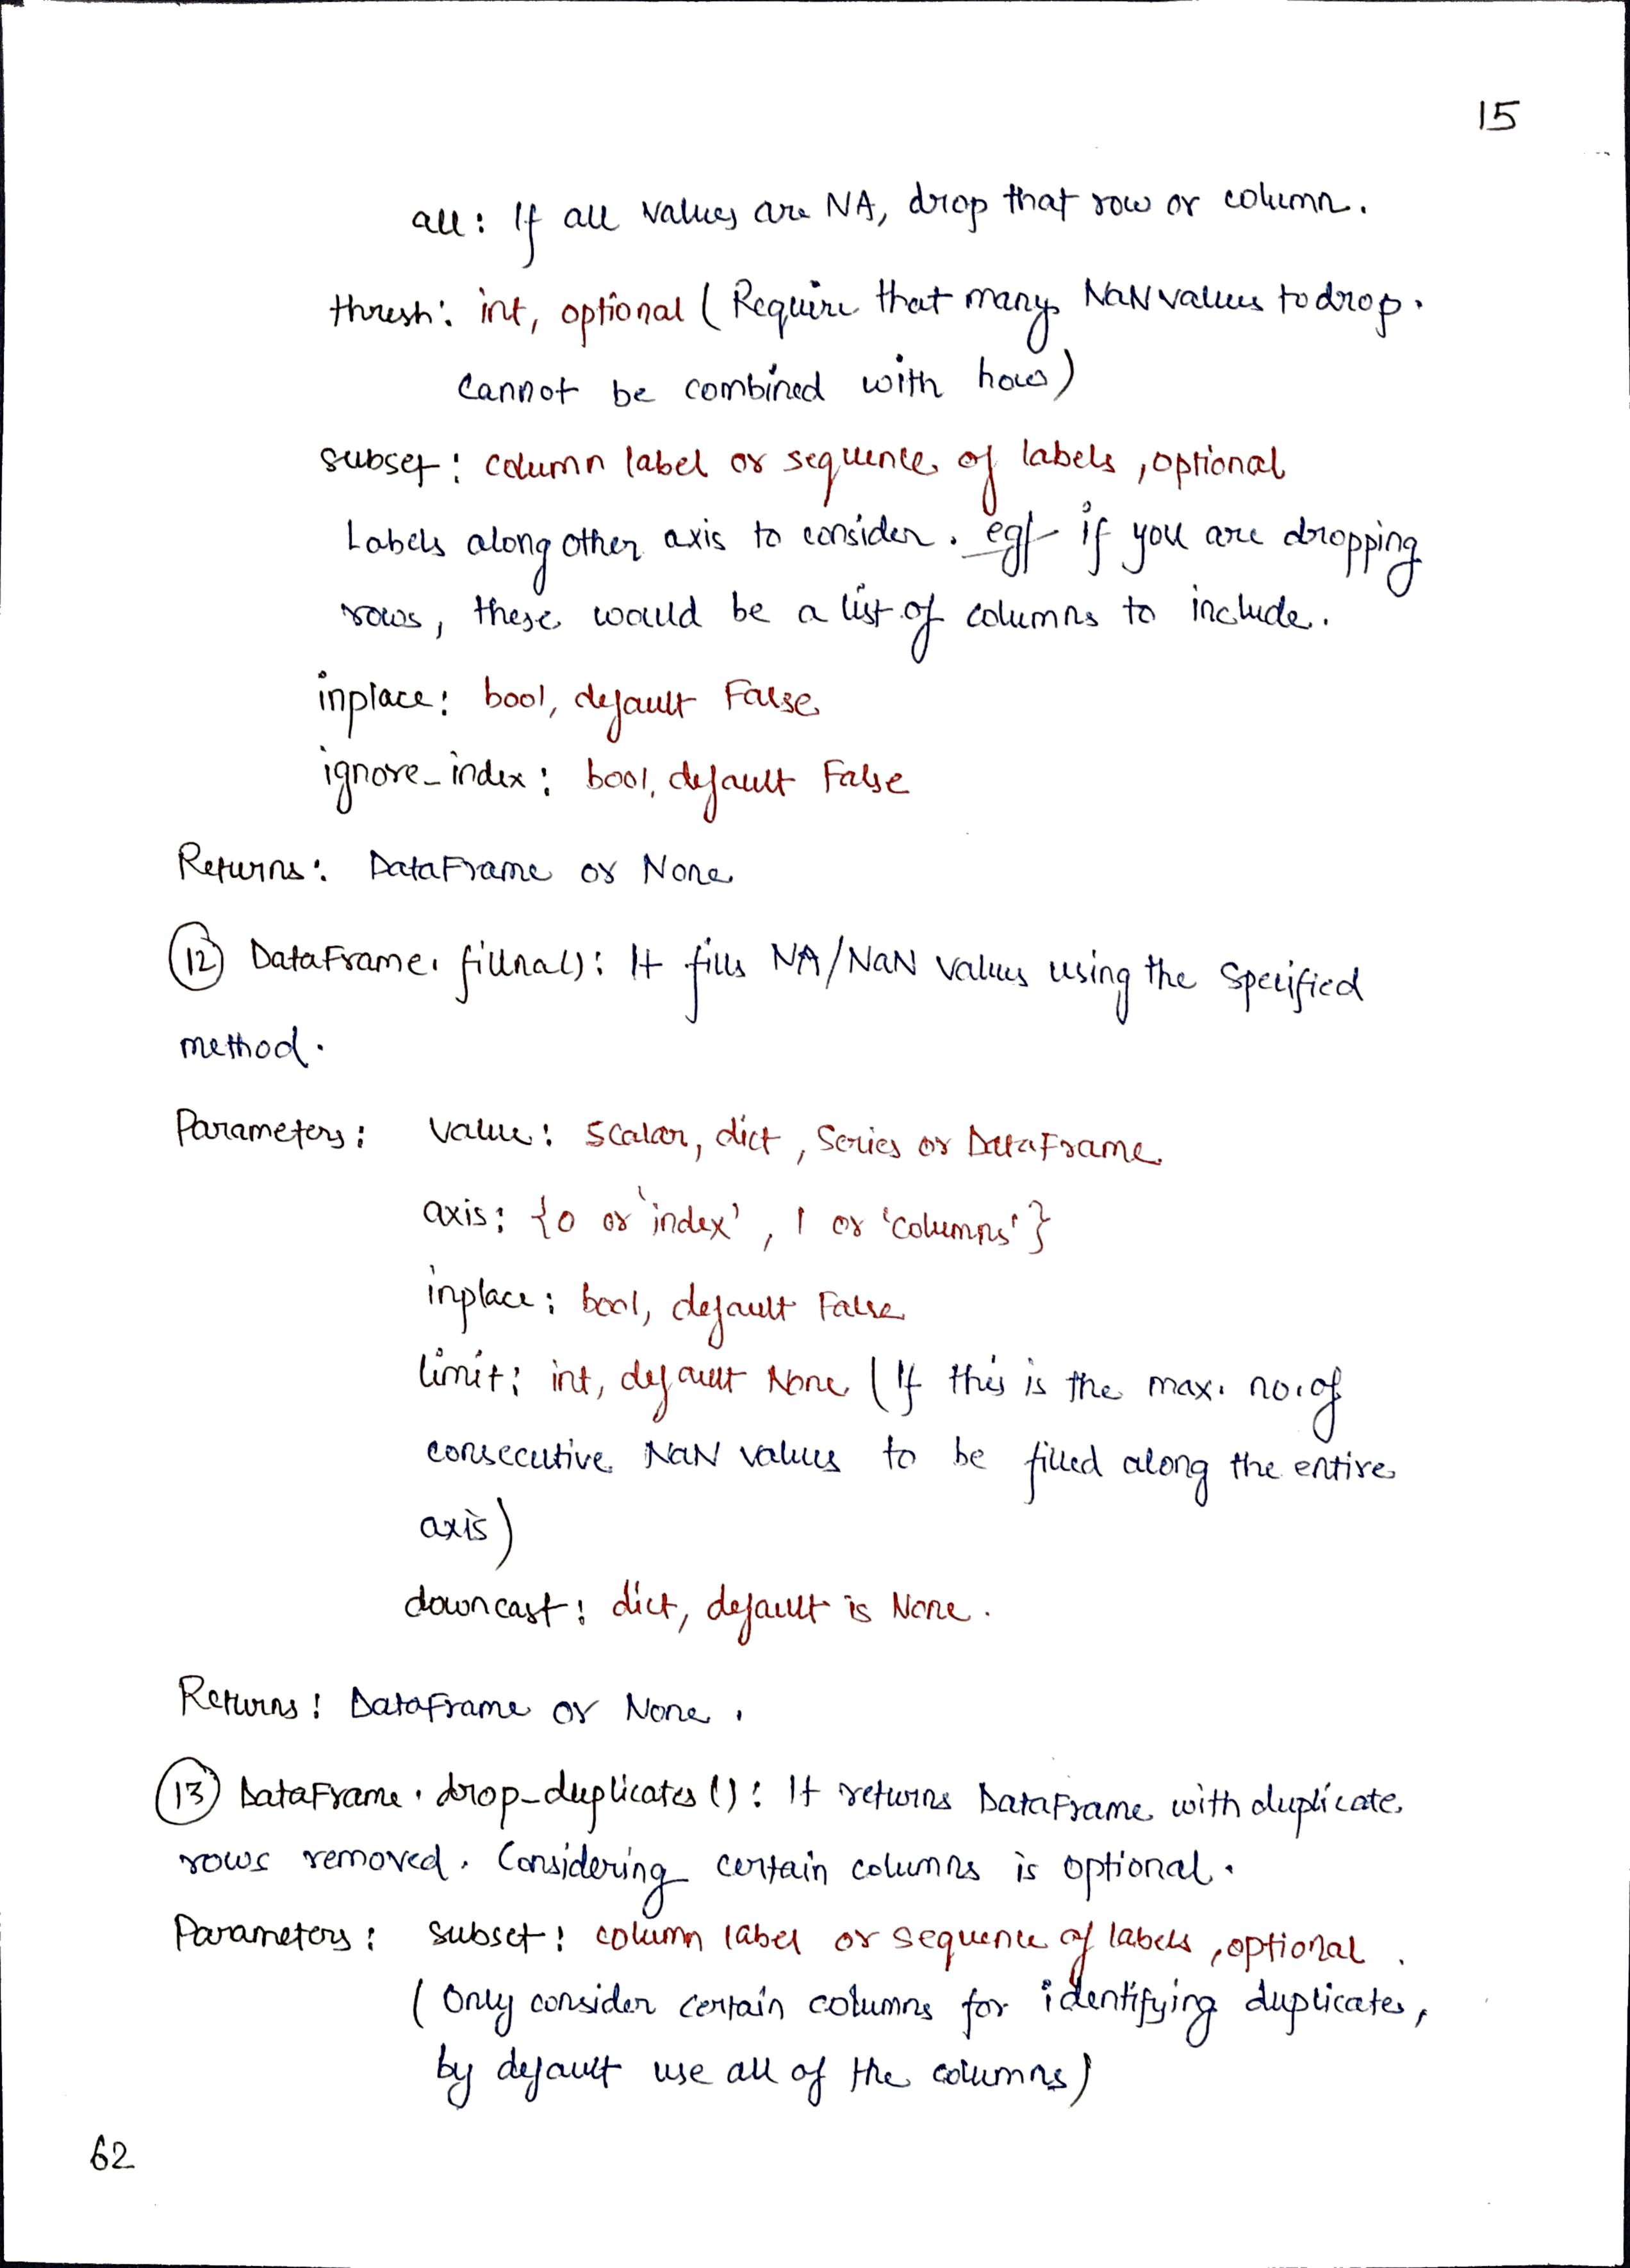 15
all: If all values are NA, drop that row or column.
thresh: int, optional (Require that many NaN values to drop.
Cannot be combined with how)
subset: column label or sequence of labels, optional
Labels along other axis to consider. eg/- if you are dropping
rows, these would be a list of columns to include.
inplace: bool, default False
ignore_index: bool, default False
Returns: DataFrame or None
12 DataFrame.fillna(): It fills NA/NaN values using the specified
method.
Parameters: value: scalar, dict, Series or DataFrame
axis: {0 or 'index', 1 or 'columns'}
inplace: bool, default False
limit: int, default None (If this is the max. no. of
consecutive NaN values to be filled along the entire
axis)
downcast: dict, default is None.
Returns: DataFrame or None.
13 DataFrame.drop_duplicates(): It returns DataFrame with duplicate
rows removed. Considering certain columns is optional.
Parameters: subset: column label or sequence of labels, optional.
(Only consider certain columns for identifying duplicates,
by default use all of the columns)
62